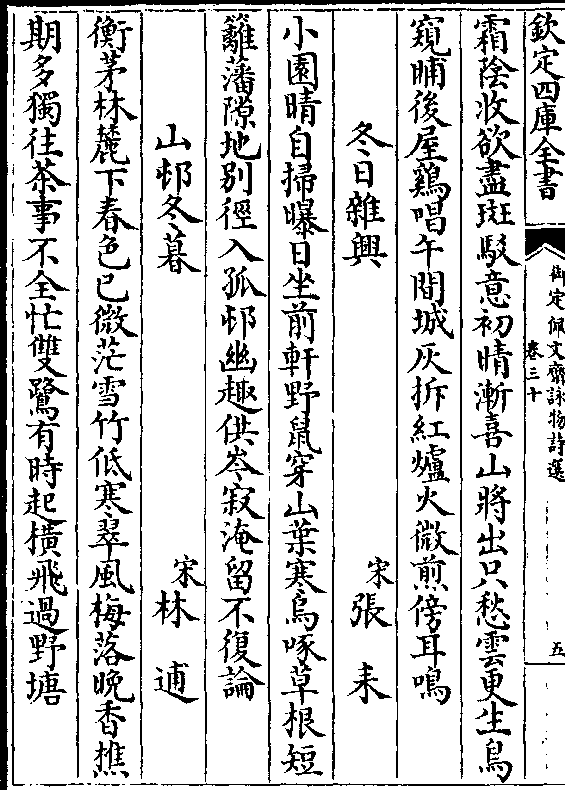 欽定四庫全書
御定佩文齋詠物詩選
卷三十
五
霜陰收欲盡斑駁意初晴漸喜山將出只愁雲更生鳥
窺晡後屋鷄唱午間城灰拆紅爐火微煎傍耳鳴
冬日雜興 宋張耒
小園晴自掃曝日坐前軒野鼠穿山葉寒烏啄草根短
籬藩隙地別徑入孤邨幽趣供岑寂淹留不復論
山邨冬暮 宋林逋
衡茅林麓下春色已微茫雪竹低寒翠風梅落晚香樵
期多獨往茶事不全忙雙鷺有時起橫飛過野塘